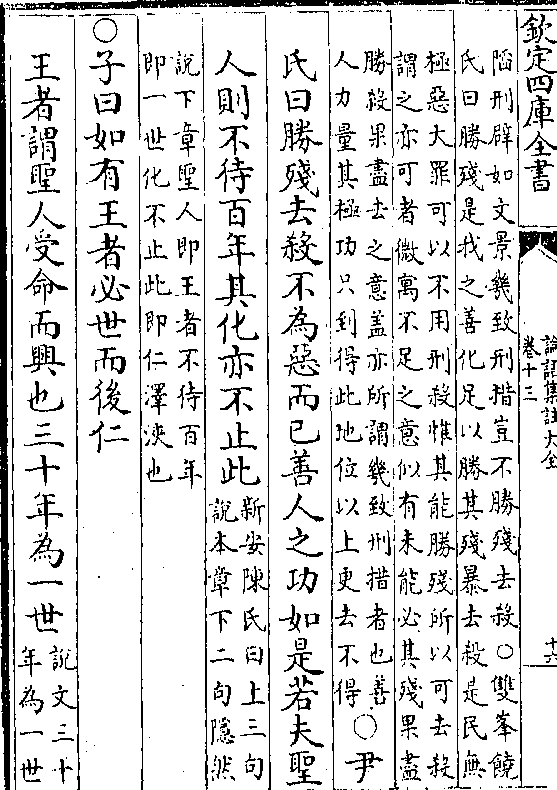 欽定四庫全書
論語集註大全
卷十三
十六
陷刑辟如文景幾致刑措豈不勝殘去殺○雙峯饒
氏曰勝殘是我之善化足以勝其殘暴去殺是民無
極惡大罪可以不用刑殺惟其能勝殘所以可去殺
謂之亦可者微寓不足之意似有未能必其殘果盡
勝殺果盡去之意蓋亦所謂幾致刑措者也善
人力量其極功只到得此地位以上更去不得
○尹
氏曰勝殘去殺不為惡而已善人之功如是若夫聖
人則不待百年其化亦不止此
新安陳氏曰上三句
說本章下二句隱然
說下章聖人即王者不待百年
即一世化不止此即仁澤浹也
○子曰如有王者必世而後仁
王者謂聖人受命而興也三十年為一世
說文三十
年為一世